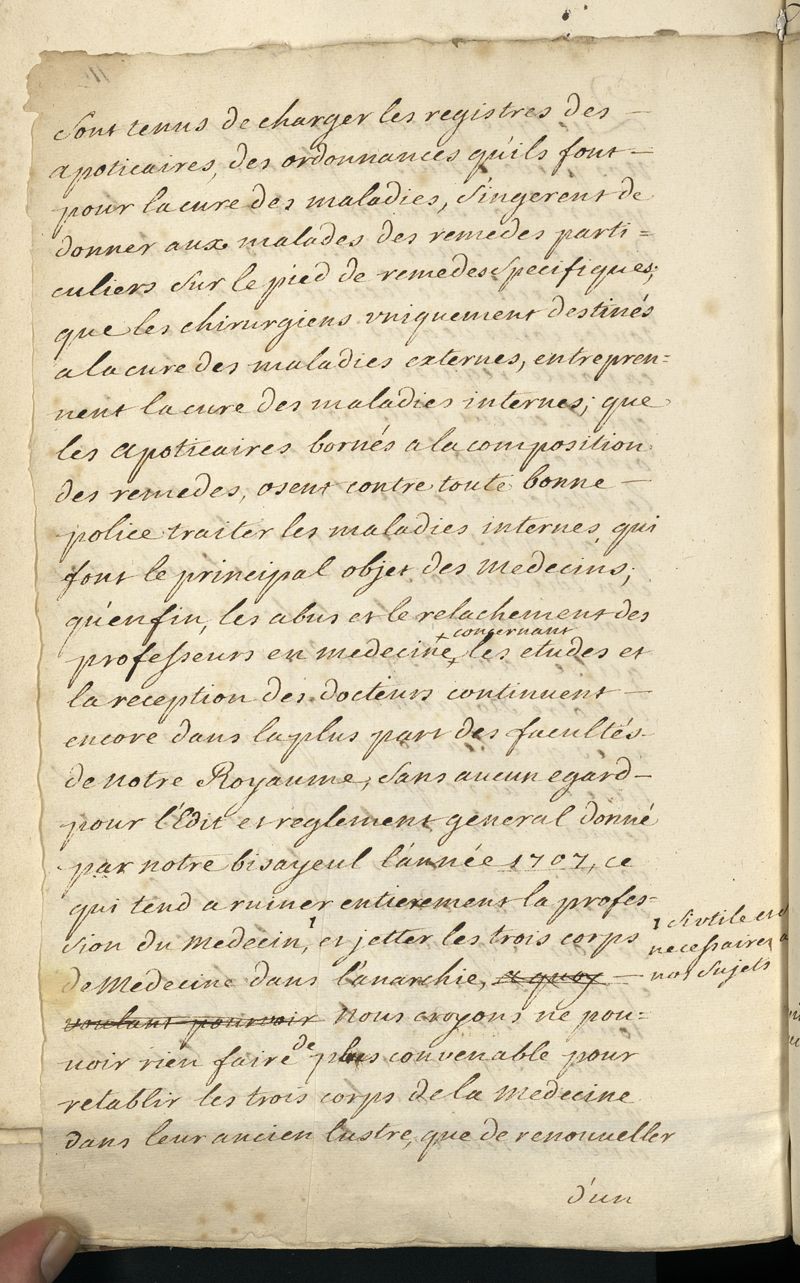 sont tenus de charger les registres des —
apoticaires, des ordonnances qu'ils font —
pour la cure des maladies, s'ingerent de
donner aux malades des remedes parti =
culiers sur le pied de remedes specifiques;
que les chirurgiens vniquement destinés
a la cure des maladies externes, entrepren=
nent la cure des maladies internes; que
les apoticaires bornés a la composition
des remedes, osent contre toute bonne —
police traiter les maladies internes, qui
font le principal objet des medecins;
qu'enfin, les abus et le relachement des
concernant
professeurs en medecine + les etudes et
la reception des docteurs continuent —
encore dans la plus part des facultés
de notre Royaume, sans aucun egard —
pour l'Edit et reglement general donné
par notre bisayeul l'année 1707, ce
qui tend a ruiner entierement la profes=
sion du medecin,¹ et jetter les trois corps
1 si vtile et
necessaire a
nos sujets
de Medecine dans l'anarchie, a quoy —
voulant pourvoir nous croyons ne pou=
voir rien faire de plus convenable pour
retablir les trois corps de la medecine
dans leur ancien lustre, que de renouveller
d'un